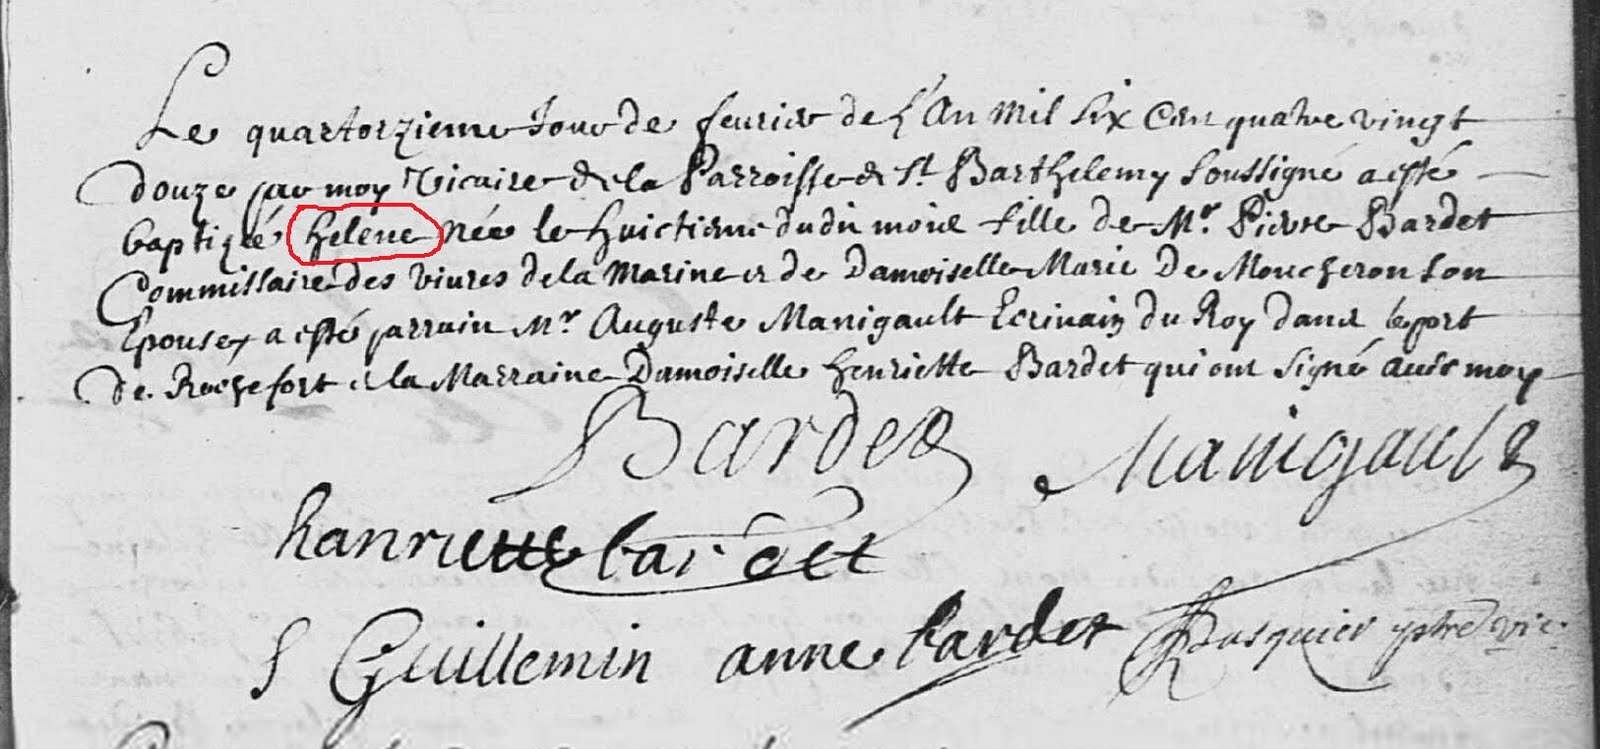 Le quartorzieme Jour de feurier de l'An Mil six Cens quatre vingt
douze par moy Vicaire de la Parroisse de St. Barthelemy soussigné a esté
baptizée helene née le huictieme dudit mois fille de Mr. Pierre Bardet
Commissaire des viures de la Marine et de Damoiselle Marie De Moucheron son
Epouse, a esté parrain Mr Auguste Manigault Ecrivain du Roy dans le port
de Rochefort et la Marraine Damoiselle henriette Bardet qui ont signé auec moy
Bardet Manigault
hanriette bardet
S Guillemin anne bardet Pasquier pbtre vic.